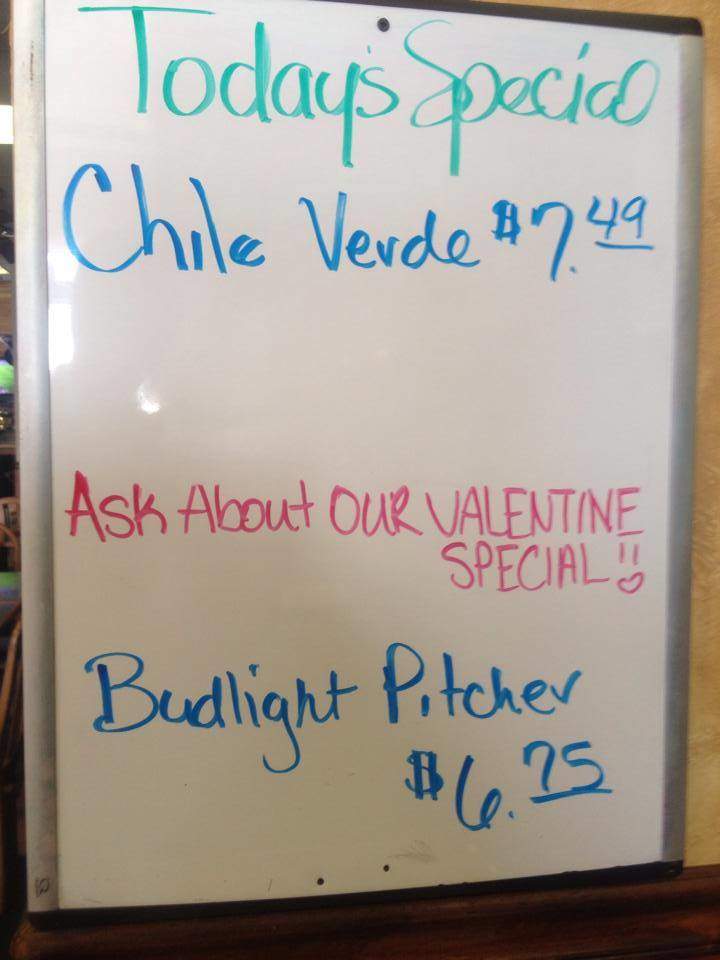 Today's Special
Chile Verde $7.49
Ask About OUR VALENTINE
SPECIAL!!
Budlight Pitcher
$6.75